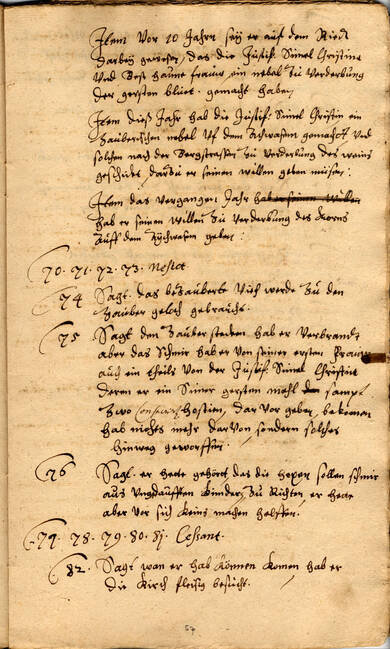 Item Vor 10 Jahrn sey er auf dem Riedt
darbey gewesen, das die Justif. Simel Christine
Vnd Best haune frauw ein nebel zu Verderbung
der gersten bluet gemacht haben
Item diess Jahr hab die Justif. Simel Christin ein
Zauberischen nebel Vf dem gemacht Vnd
solchen nach der Bergstrassen zu Verderbung des weins
geschickt, darzu er seinen willen geben müssen.
Item das vergangen Jahr hab er seinen willen
hab er seinen willen zu Verderbung des Korns
auff dem geben:
70. 71. 72. 73. Nescit
74 Sagt. das bezaubert Vich werde zu den
Zauber gelch gebraucht.
75 Sagt den Zauber stecken hab er Verbrandt
aber das schmir hab er von seiner ersten Frauwen
auch ein theils von der Justif. Simel Christin
deren er ein Simer gersten mehl sampt
zwo hostien, dar vor geben, bekomen
hab nichts mehr darvon sondern solches
hinweg geworffen.
76 Sagt. er hette gehört das die hexen sollen schmir
aus Vngdaufften Kindern zu Richten, er hette
aber vor sich keins machen helffen.
77. 78. 79. 80. 81. Cessant.
82. Sagt wan er hab können komen hab er
die Kirch fleisig besucht.
57